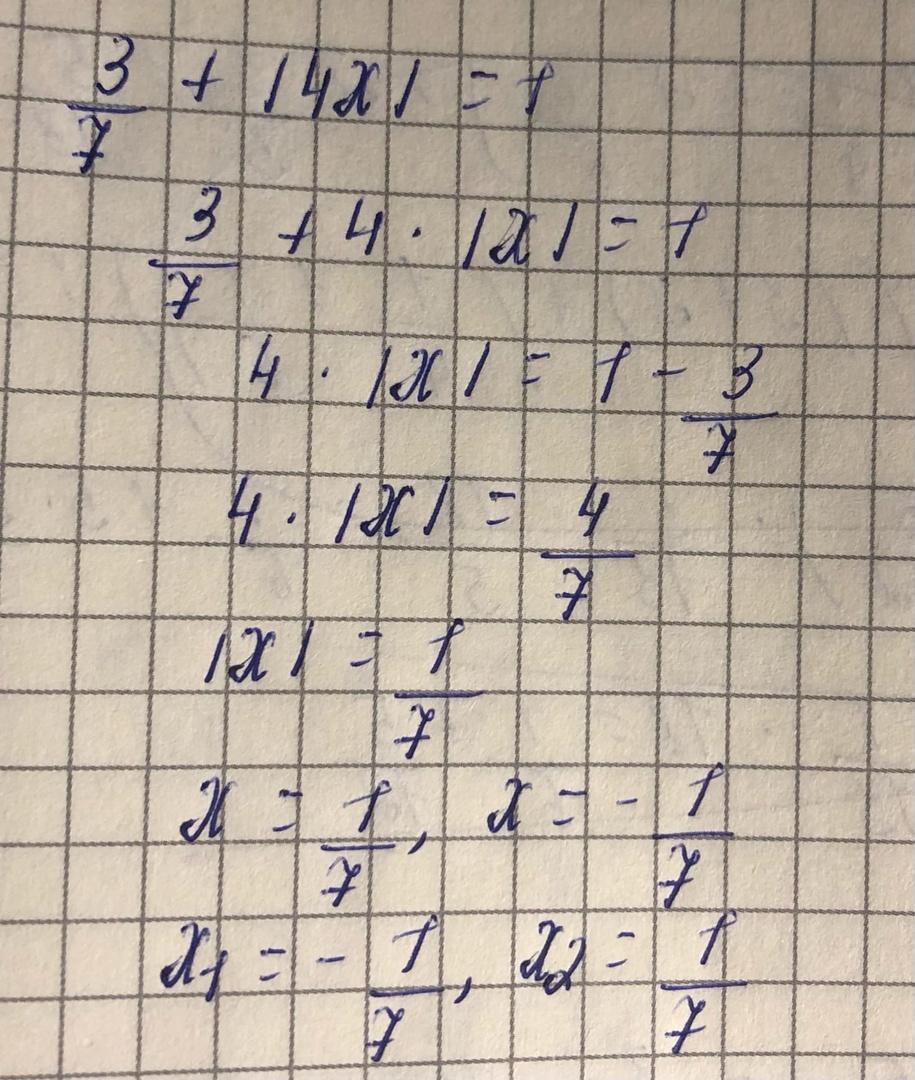 3/7 + |4x| = 1
3/7 + 4 · |x| = 1
4 · |x| = 1 - 3/7
4 · |x| = 4/7
|x| = 1/7
x = 1/7, x = - 1/7
x₁ = - 1/7, x₂ = 1/7